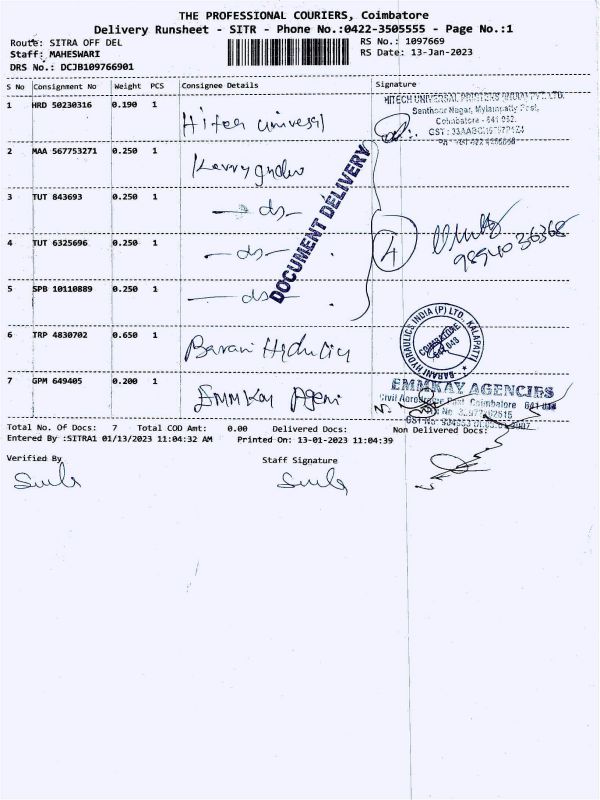 THE PROFESSIONAL COURIERS, Coimbatore
Delivery Runsheet - SITR - Phone No.:0422-3505555 - Page No.:1
Route: SITRA OFF DEL RS No.: 1097669
Staff: MAHESWARI RS Date: 13-Jan-2023
DRS No.: DCJB109766901
S No Consignment No Weight PCS Consignee Details Signature
1 HRD 50230316 0.190 1 Hitech Universal
HITECH UNIVERSAL
Senthoor Nagar, Mylampatty Post,
Coimbatore - 641 062.
2 MAA 567753271 0.250 1
DOCUMENT DELIVERY
3 TUT 843693 0.250 1 ds
4 TUT 6325696 0.250 1 ds 4
5 SPB 10110889 0.250 1 ds
6 TRP 4830702 0.650 1 Barani
BARANI HYDRAULICS INDIA (P) LTD., KALAPATTI
COIMBATORE
641 048
7 GPM 649405 0.200 1 EMMKay Agen
EMMKAY AGENCIES
Coimbatore
Total No. Of Docs: 7 Total COD Amt: 0.00 Delivered Docs: Non Delivered Docs:
Entered By :SITRA1 01/13/2023 11:04:32 AM Printed On: 13-01-2023 11:04:39
Verified By Staff Signature